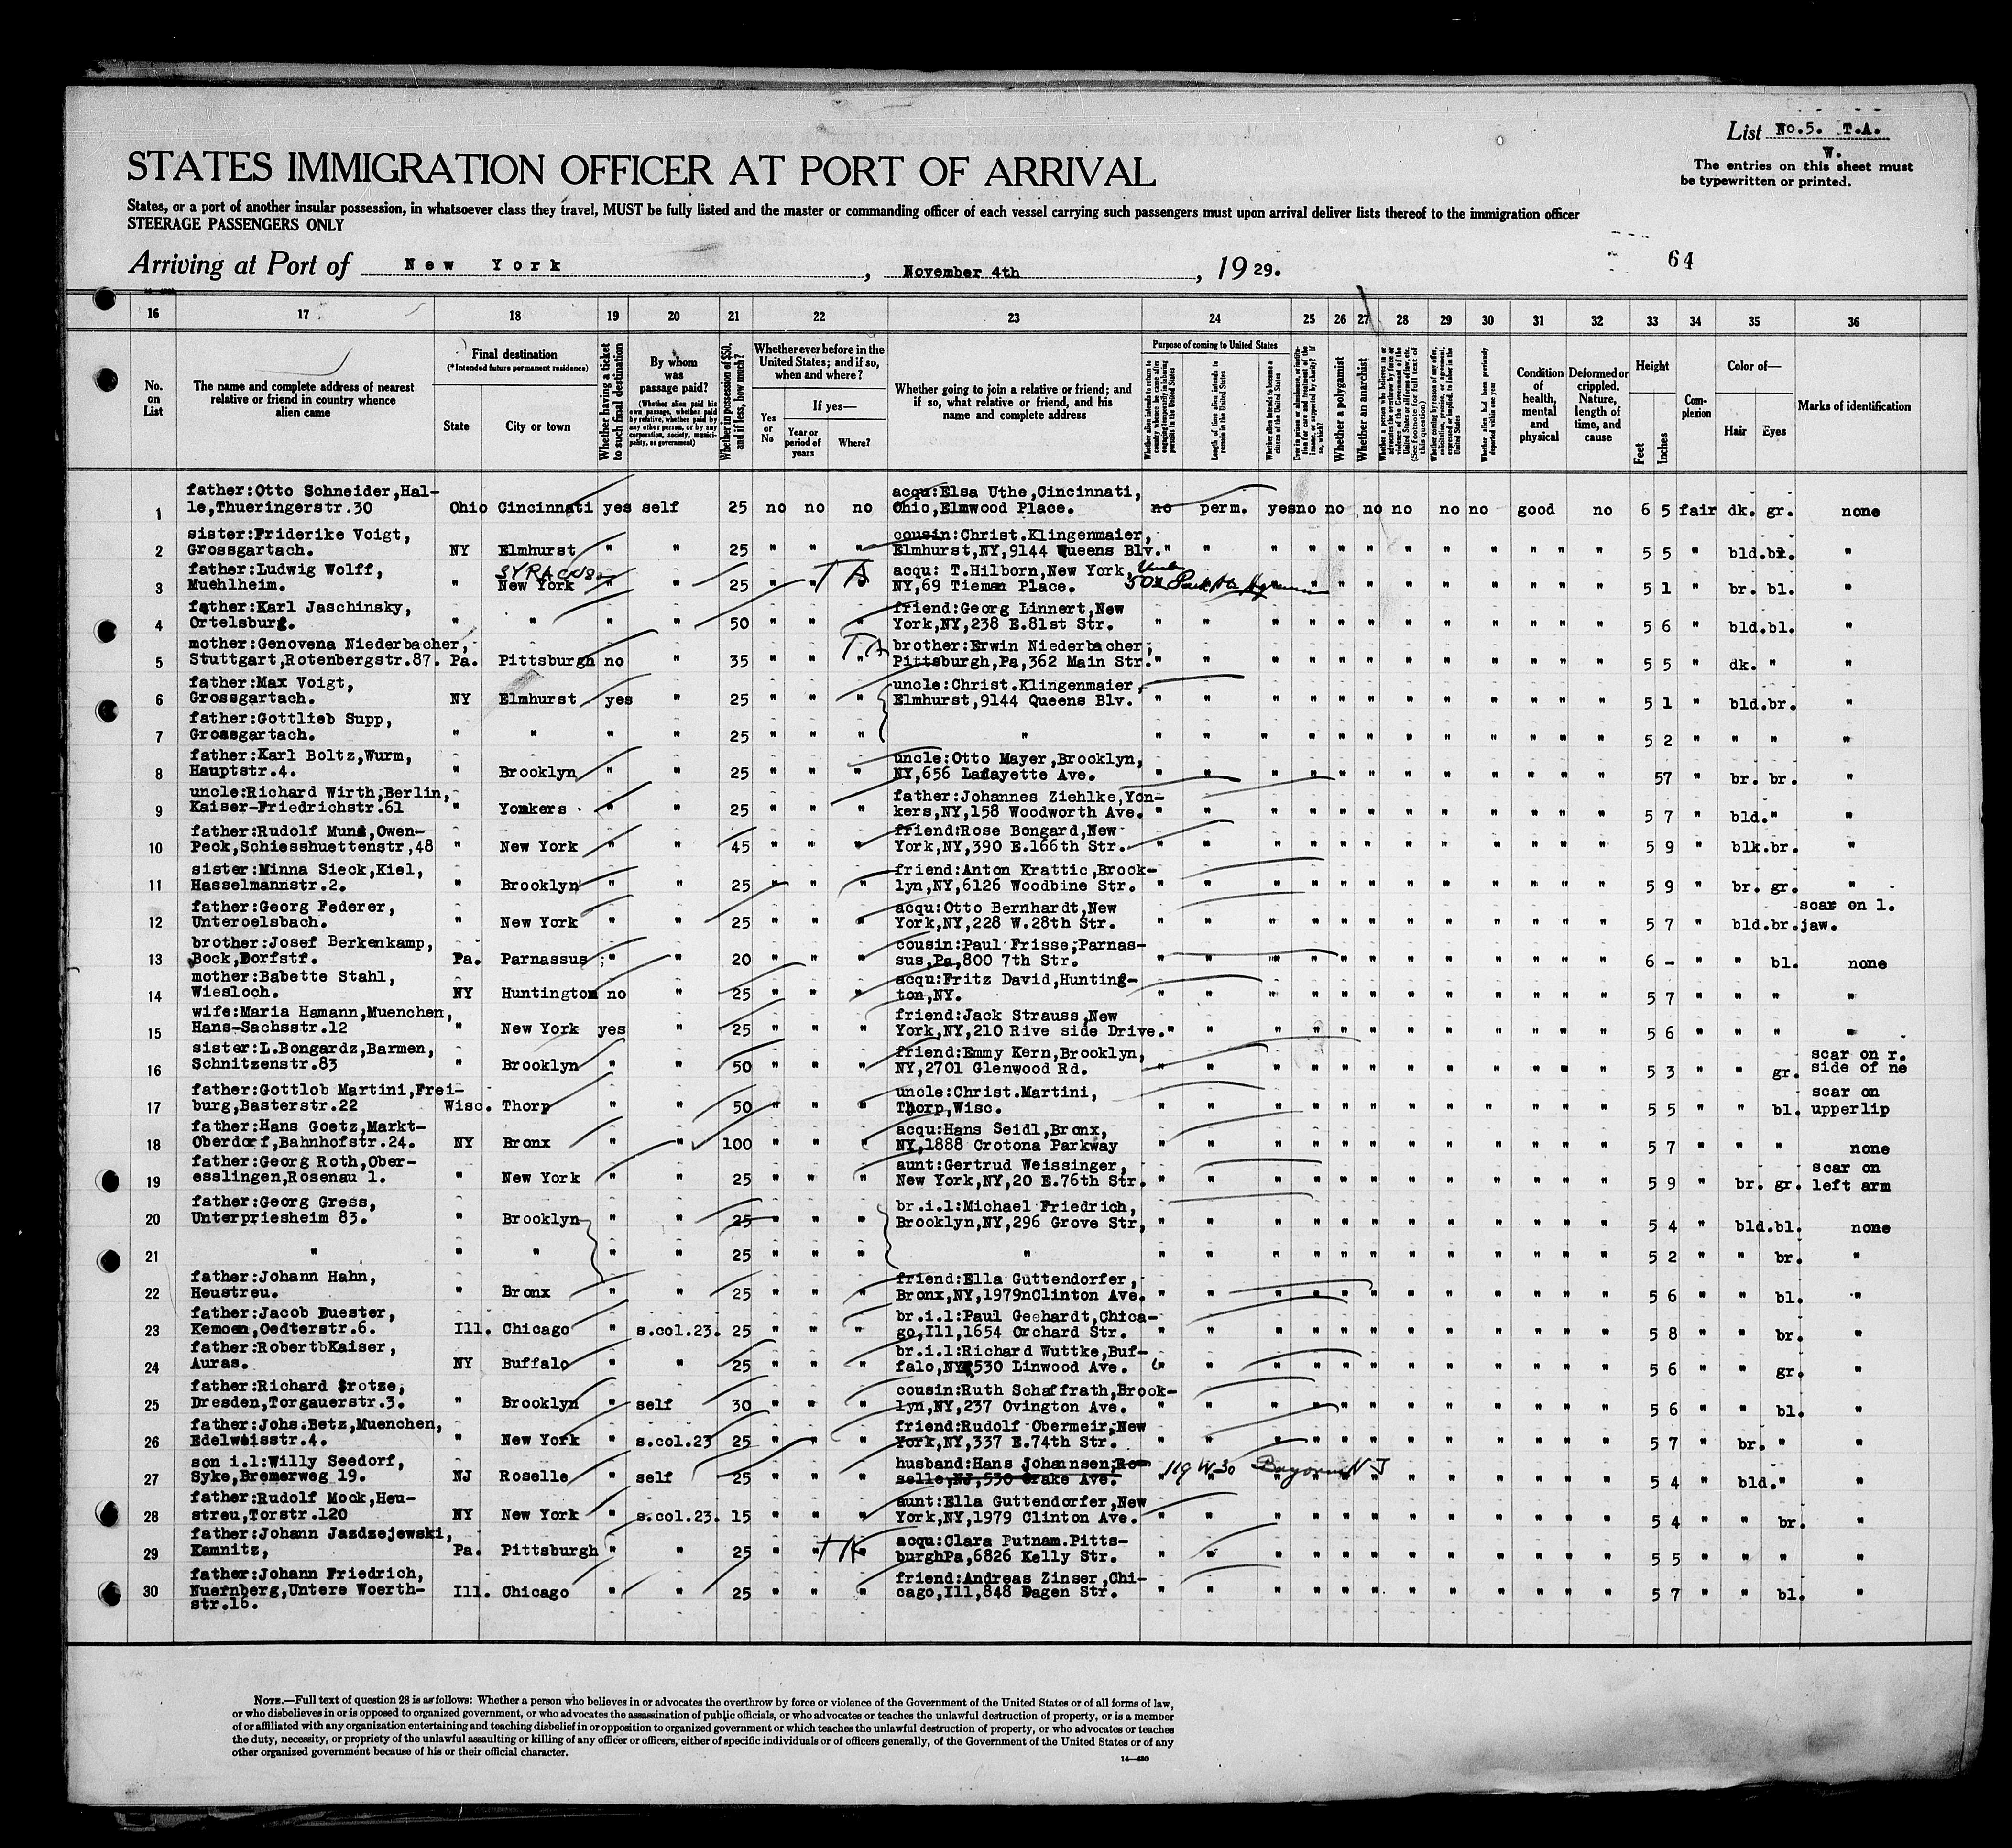 List No.5. T.A.
W.
The entries on this sheet must
be typewritten or printed.
STATES IMMIGRATION OFFICER AT PORT OF ARRIVAL
States, or a port of another insular possession, in whatsoever class they travel, MUST be fully listed and the master or commanding officer of each vessel carrying such passengers must upon arrival deliver lists thereof to the immigration officer
STEERAGE PASSENGERS ONLY
Arriving at Port of New York, November 4th, 1929.
64
16 17 18 19 20 21 22 23 24 25 26 27 28 29 30 31 32 33 34 35 36
No. on List
The name and complete address of nearest relative or friend in country whence alien came
Final destination
(*Intended future permanent residence)
State
City or town
Whether having a ticket to such final destination
By whom was passage paid?
(Whether alien paid his own passage, whether paid by relative, whether paid by any other person, or by any corporation, society, municipality, or government)
Whether in possession of $50, and if less, how much?
Whether ever before in the United States; and if so, when and where?
Yes or No
If yes—
Year or period of years
Where?
Whether going to join a relative or friend; and if so, what relative or friend, and his name and complete address
Purpose of coming to United States
Length of time alien intends to remain in the United States
Whether alien intends to become a citizen of the United States
Whether a polygamist
Whether an anarchist
Whether alien had been previously deported within one year
Condition of health, mental and physical
Deformed or crippled. Nature, length of time, and cause
Height
Feet
Inches
Complexion
Color of—
Hair
Eyes
Marks of identification
father:Otto Schneider,Hal-
acqu:Elsa Uthe,Cincinnati,
1 le,Thueringerstr.30 Ohio Cincinnati yes self 25 no no no Ohio,Elmwood Place. no perm. yes no no no no no no good no 6 5 fair dk. gr. none
sister:Friderike Voigt,
cousin:Christ.Klingenmaier,
2 Grossgartach. NY Elmhurst " " 25 " " " Elmhurst,NY,9144 Queens Blv. " " " " " " " " " " " " 5 5 " bld.br. "
father:Ludwig Wolff, SYRACUSE
acqu: T.Hilborn,New York,
3 Muehlheim. " New York " " 25 " " TA NY,69 Tieman Place. " " " " " " " " 5 1 " br. bl. "
father:Karl Jaschinsky,
friend:Georg Linnert,New
4 Ortelsburg. " " " " 50 " " " York,NY,238 E.81st Str. " " " " " " " " " " " " 5 6 " bld.bl. "
mother:Genovena Niederbacher,
TA brother:Erwin Niederbacher,
5 Stuttgart,Rotenbergstr.87. Pa. Pittsburgh no " 35 " " " Pittsburgh,Pa,362 Main Str. " " " " " " " " " " " " 5 5 " dk. " "
father:Max Voigt,
uncle:Christ.Klingenmaier,
6 Grossgartach. NY Elmhurst yes " 25 " " " Elmhurst,9144 Queens Blv. " " " " " " " " " " " " 5 1 " bld.br. "
father:Gottlieb Supp,
7 Grossgartach. " " " " 25 " " " " " " " " " " " " " " " " 5 2 " " " "
father:Karl Boltz,Wurm,
uncle:Otto Mayer,Brooklyn,
8 Hauptstr.4. " Brooklyn " " 25 " " " NY,656 Lafayette Ave. " " " " " " " " " " " " 57 " br. br. "
uncle:Richard Wirth,Berlin,
father:Johannes Ziehlke,Yon-
9 Kaiser-Friedrichstr.61 " Yonkers " " 25 " " " kers,NY,158 Woodworth Ave. " " " " " " " " " " " " 5 7 " bld. " "
father:Rudolf Mund,Owen-
friend:Rose Bongard,New
10 Peck,Schiesshuettenstr,48 " New York " " 45 " " " York,NY,390 E.166th Str. " " " " " " " " " " " " 5 9 " blk.br. "
sister:Minna Sieck,Kiel,
friend:Anton Krattic,Brook-
11 Hasselmannstr.2. " Brooklyn " " 25 " " " lyn,NY,6126 Woodbine Str. " " " " " " " " " " " " 5 9 " br. gr. "
father:Georg Federer,
acqu:Otto Bernhardt,New scar on l.
12 Unteroelsbach. " New York " " 25 " " " York,NY,228 W.28th Str. " " " " " " " " " " " " 5 7 " bld.br. jaw.
brother:Josef Berkenkamp,
cousin:Paul Frisse,Parnas-
13 Bock,Dorfstf. Pa. Parnassus " " 20 " " " sus,Pa,800 7th Str. " " " " " " " " " " " " 6 - " " bl. none
mother:Babette Stahl,
acqu:Fritz David,Hunting-
14 Wiesloch. NY Huntington no " 25 " " " ton,NY. " " " " " " " " " " " " 5 7 " " " "
wife:Maria Hamann,Muenchen,
friend:Jack Strauss,New
15 Hans-Sachsstr.12 " New York yes " 25 " " " York,NY,210 Rive side Drive. " " " " " " " " " " " " 5 6 " " " "
sister:L.Bongardz,Barmen,
friend:Emmy Kern,Brooklyn, scar on r.
16 Schnitzenstr.83 " Brooklyn " " 50 " " " NY,2701 Glenwood Rd. " " " " " " " " " " " " 5 3 " " gr. side of ne
father:Gottlob Martini,Frei-
uncle:Christ.Martini, scar on
17 burg,Basterstr.22 Wisc. Thorp " " 50 " " " Thorp,Wisc. " " " " " " " " " " " " 5 5 " " bl. upperlip
father:Hans Goetz,Markt-
acqu:Hans Seidl,Bronx,
18 Oberdorf,Bahnhofstr.24. NY Bronx " " 100 " " " NY,1888 Crotona Parkway " " " " " " " " " " " " 5 7 " " " none
father:Georg Roth,Ober-
aunt:Gertrud Weissinger, scar on
19 esslingen,Rosenau 1. " New York " " 25 " " " New York,NY,20 E.76th Str. " " " " " " " " " " " " 5 9 " br. gr. left arm
father:Georg Gress,
br.i.l:Michael Friedrich,
20 Unterpriesheim 83. " Brooklyn " " 25 " " " Brooklyn,NY,296 Grove Str, " " " " " " " " " " " " 5 4 " bld.bl. none
21 " " " " " 25 " " " " " " " " " " " " " " " " 5 2 " " br. "
father:Johann Hahn,
friend:Ella Guttendorfer,
22 Heustreu. " Bronx " " 25 " " " Bronx,NY,1979nClinton Ave. " " " " " " " " " " " " 5 6 " " bl. "
father:Jacob Duester,
br.i.l:Paul Geehardt,Chica-
23 Kemoen,Oedterstr.6. Ill. Chicago " s.col.23. 25 " " " go,Ill,1654 Orchard Str. " " " " " " " " " " " " 5 8 " " br. "
father:RobertbKaiser,
br.i.l:Richard Wuttke,Buf-
24 Auras. NY Buffalo " " 25 " " " falo,NY,530 Linwood Ave. " " " " " " " " " " " " 5 6 " " gr. "
father:Richard Srotze,
cousin:Ruth Schaffrath,Brook-
25 Dresden,Torgauerstr.3. " Brooklyn " self 30 " " " lyn,NY,237 Ovington Ave. " " " " " " " " " " " " 5 6 " " bl. "
father:Johs.Betz,Muenchen,
friend:Rudolf Obermeir,New
26 Edelweisstr.4. " New York " s.col.23 25 " " " York,NY,337 E.74th Str. " " " " " " " " " " " " 5 7 " br. " "
son i.l:Willy Seedorf,
husband:Hans Johannsen,Ro- 119 W 30 Bayonne N J
27 Syke,Bremerweg 19. NJ Roselle " self 25 " " " selle,NJ,530 Drake Ave. " " " " " " " " " " " " 5 4 " bld. " "
father:Rudolf Mock,Heu-
aunt:Ella Guttendorfer,New
28 streu,Torstr.120 NY New York " s.col.23. 15 " " " York,NY,1979 Clinton Ave. " " " " " " " " " " " " 5 4 " " br. "
father:Johann Jazdzejewski,
acqu:Clara Putnam.Pitts-
29 Kamnitz, Pa. Pittsburgh " " 25 " " " burghPa,6826 Kelly Str. " " " " " " " " " " " " 5 5 " " " "
father:Johann Friedrich,
friend:Andreas Zinser,Chi-
30 Nuernberg,Untere Woerth- Ill. Chicago " " 25 " " " cago,Ill,848 Dagen Str. " " " " " " " " " " " " 5 7 " " bl. "
str.16.
NOTE.—Full text of question 28 is as follows: Whether a person who believes in or advocates the overthrow by force or violence of the Government of the United States or of all forms of law,
or who disbelieves in or is opposed to organized government, or who advocates the assassination of public officials, or who advocates or teaches the unlawful destruction of property, or is a member
of or affiliated with any organization entertaining and teaching disbelief in or opposition to organized government or which teaches the unlawful destruction of property, or who advocates or teaches
the duty, necessity, or propriety of the unlawful assaulting or killing of any officer or officers, either of specific individuals or of officers generally, of the Government of the United States or of any
other organized government because of his or their official character.
14—430